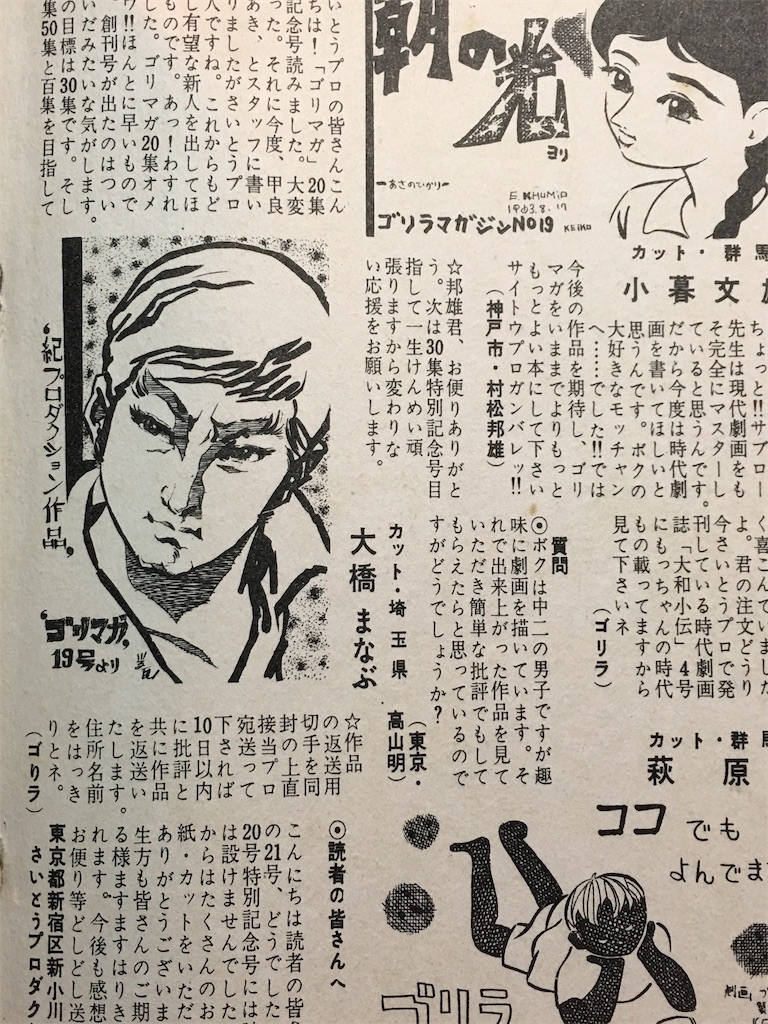 いとうプロの皆さんこん
ちは!「ゴリマガ」20集
記念号読みました。大変
った。それに今度、甲良
あき、とスタッフに書い
りましたがさいとうプロ
人ですね。これからもど
し有望な新人を出してほ
ものです。あっ!わすれ
した。ゴリマガ20集オメ
ウ!!ほんとに早いもので
、創刊号が出たのはつい
いだみたいな気がします。
の目標は30集です。そし
集50集と百集を目指して
朝の光
ヨリ
―あさのひかり―
1963.8.17
ゴリラマガジンNo19
KEIKO
カット・群馬
小暮文
ちょっと!!サブロー
先生は現代劇画をも
そ完全にマスターし
ていると思うんです。
だから今度は時代劇
画を書いてほしいと
思うんです。ボクの
大好きなモッチャン
へ……でした!!では
今後の作品を期待し、ゴリ
マガをいままでよりもっと
もっとよい本にして下さい
サイトウプロガンバレッ!!
(神戸市・村松邦雄)
☆邦雄君、お便りありがと
う。次は30集特別記念号目
指して一生けんめい頑
張りますから変わりな
い応援をお願いします。
紀プロダクション作品
ゴリマガ
19号より
カット・埼玉県
大橋まなぶ
く喜こんでいました
よ。君の注文どうり
今さいとうプロで発
刊している時代劇画
誌「大和小伝」4号
にもっちゃんの時代
もの載ってますから
見て下さいネ
(ゴリラ)
質問
◎ボクは中二の男子ですが趣
味に劇画を描いています。そ
れで出来上がった作品を見て
いただき簡単な批評でもして
もらえたらと思っているので
すがどうでしょうか?
(東京・高山明)
☆作品
の返送用
切手を同
封の上直
接当プロ
宛送って
下されば
10日以内
に批評と
共に作品
を返送い
たします。
住所名前
をはっき
りとネ。
(ゴリラ)
カット・群馬
萩原
ココでも
よんでま
ゴリラ
劇画
◎読者の皆さんへ
こんにちは読者の皆
の21号、どうでした
20号特別記念号には
は設けませんでした
からはたくさんのお
紙・カットをいただ
ありがとうございま
生方も皆さんのご期
る様ますますはりき
れます。今後も感想
お便り等どしどし送
東京都新宿区新小川
さいとうプロダク